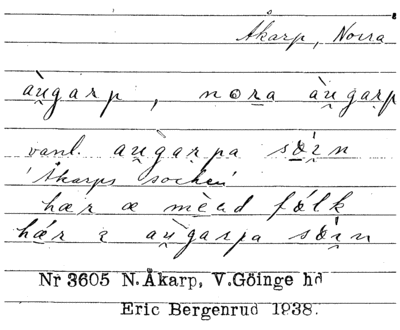 Åkarp, Norra
àu̯garp, nɷra àu̯garp
vanl. au̯garpa sɷ́i̯n
'Åkarps socken'
hær æ mèad fålk
hær ɪ àu̯garpa sɷ́i̯n
Nr 3605 N.Åkarp, V.Göinge hd
Eric Bergenrud 1938.